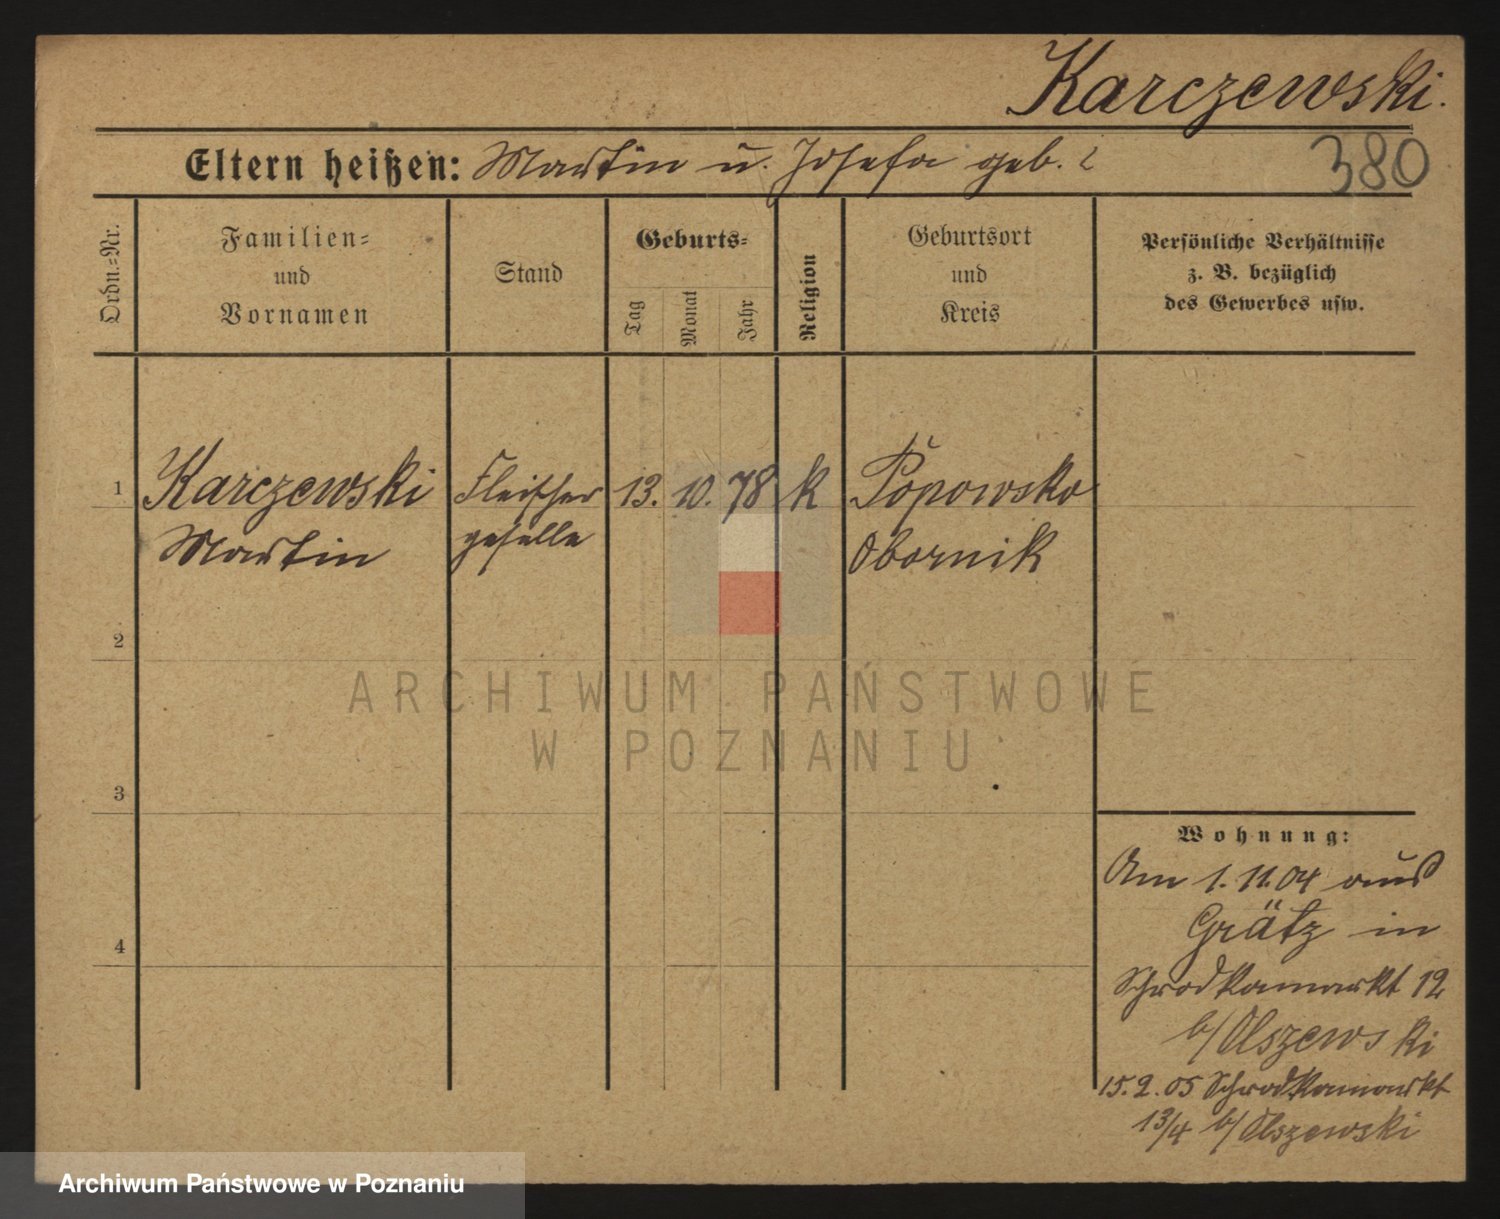 Karczewski.
Eltern heißen: Martin u. Josefa geb. ?
380
Ordn.=Nr.
Familien=
und
Vornamen
Stand
Geburts=
Tag
Monat
Jahr
Religion
Geburtsort
und
Kreis
Persönliche Verhältnisse
z. B. bezüglich
des Gewerbes usw.
1 Karczewski Fleischer 13. 10. 78 k Popowsko
Martin geselle Obornik
2
3
4
Wohnung:
Am 1.11.04 aus
Grätz in
Schrodkamarkt 12
b/Olszewski
15.2.05 Schrodkamarkt
13/4 b/Olszewski
ARCHIWUM PAŃSTWOWE
W POZNANIU
Archiwum Państwowe w Poznaniu